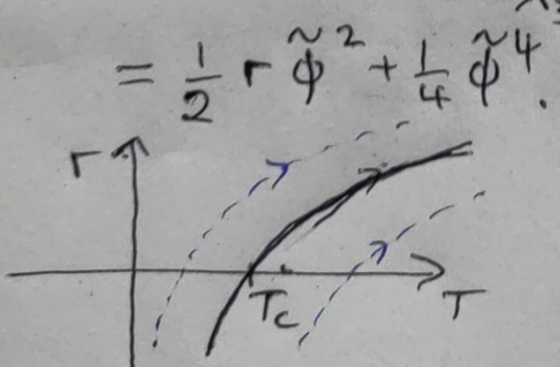 = 1/2 r φ̃² + 1/4 φ̃⁴.
r
T_c T